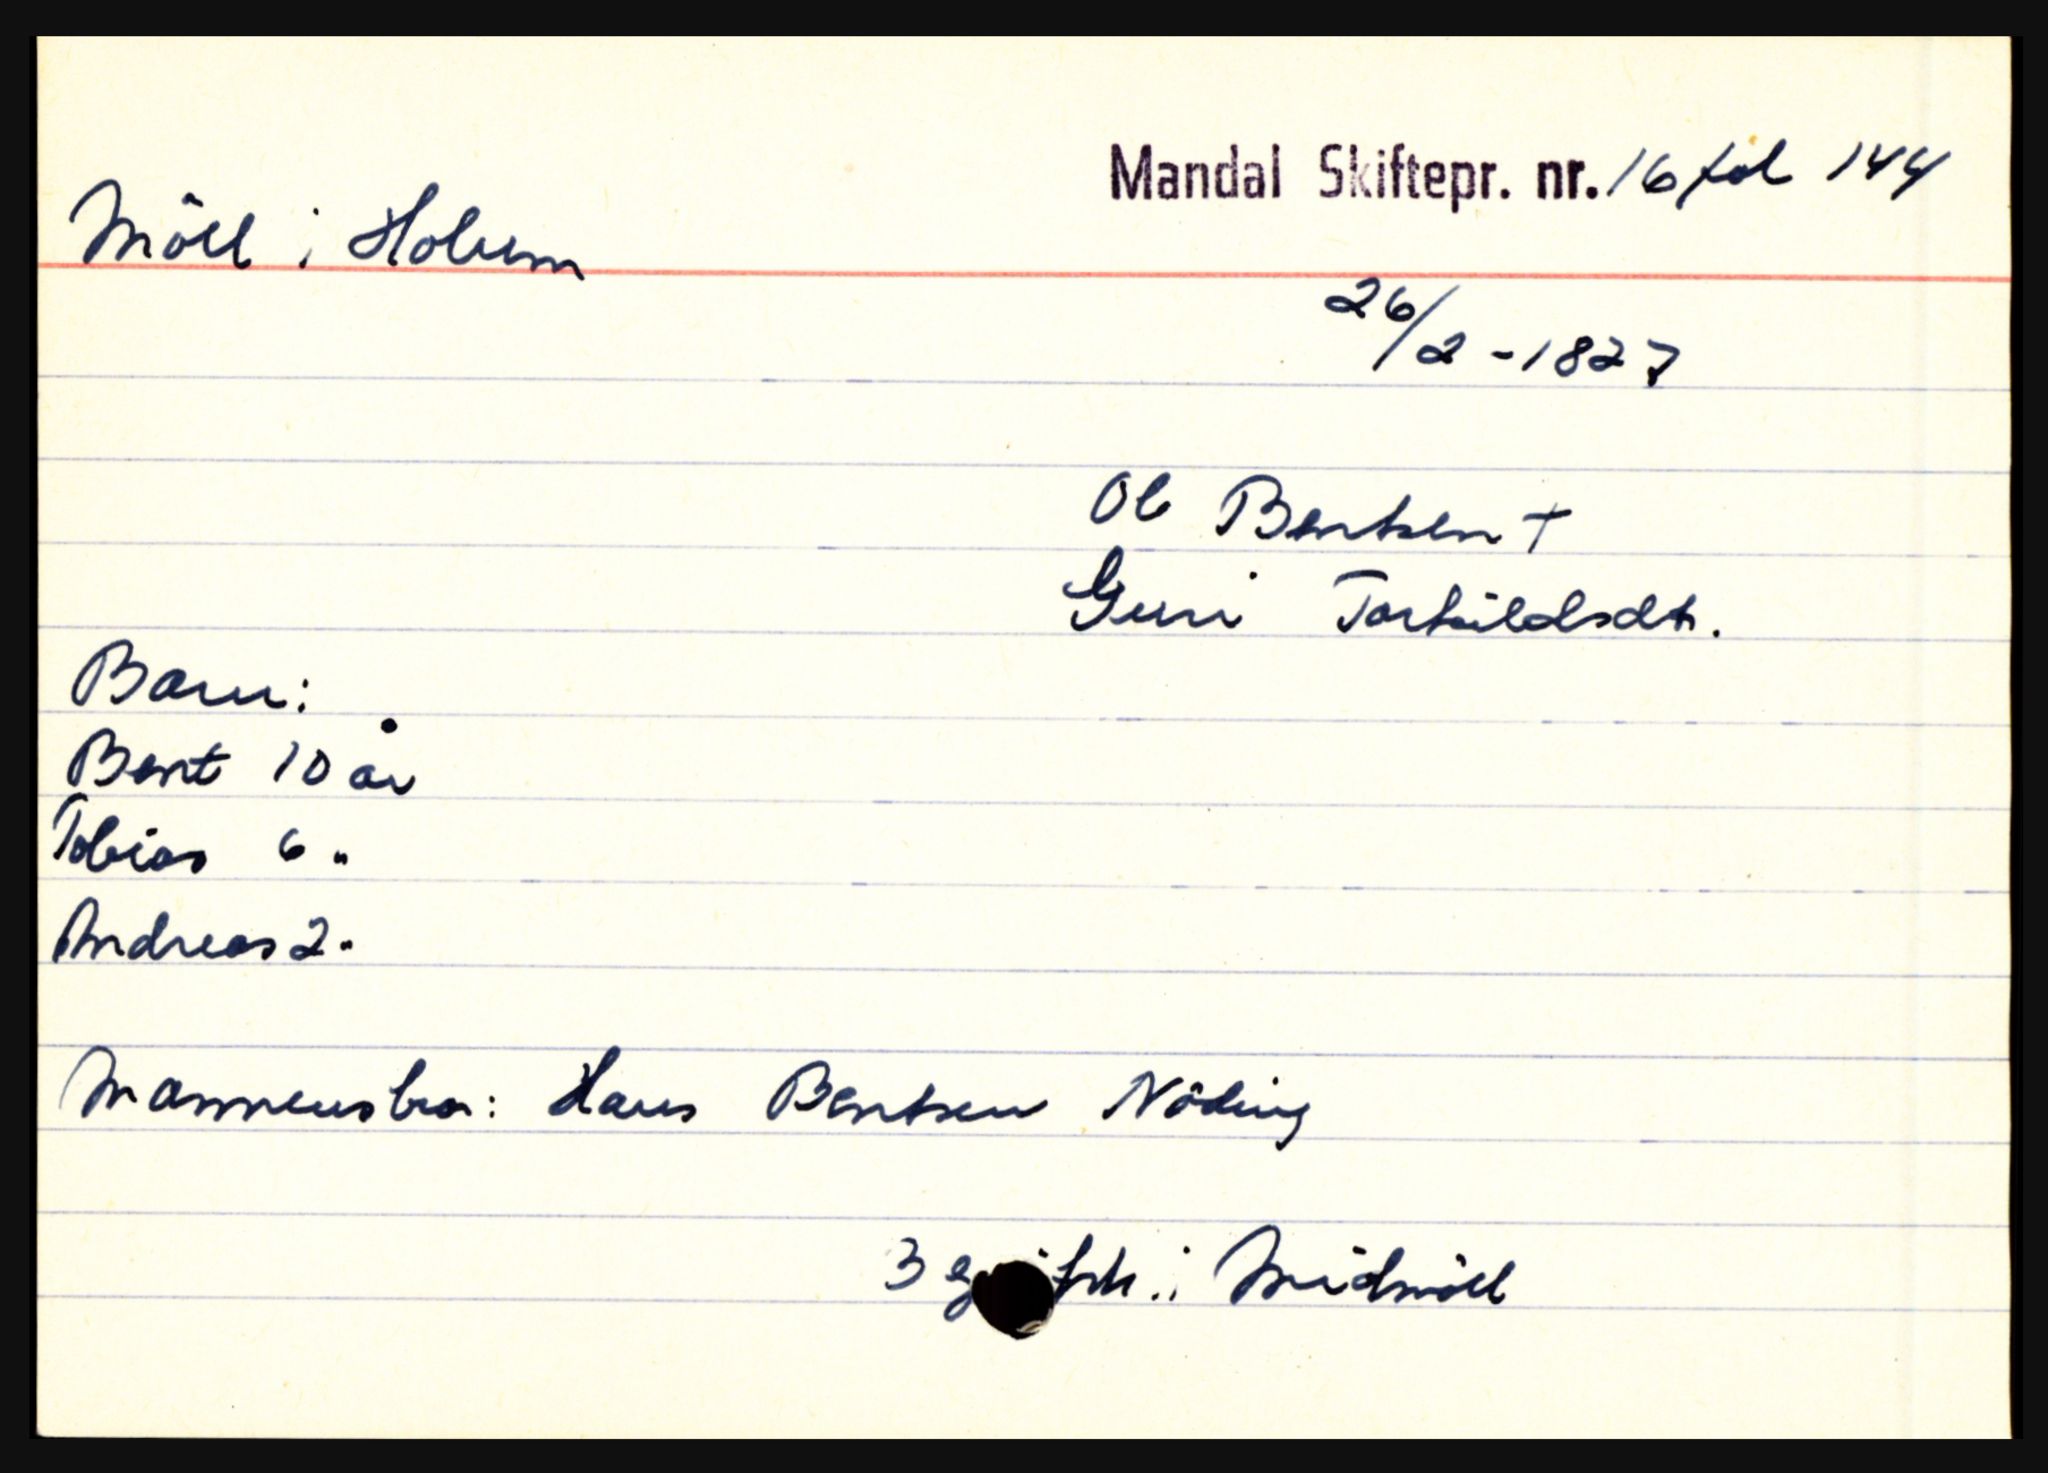 Mandal Skiftepr. nr. 16 fol 144
Möll i Holum
26/2 - 1827
Ol Bentsen +
Guri Torkildsdt.
Barn:
Bent 10 år
Tobias 6 "
Andreas 2 "
Mannens bror: Hans Bentsen Nöding
3 i Midmöll